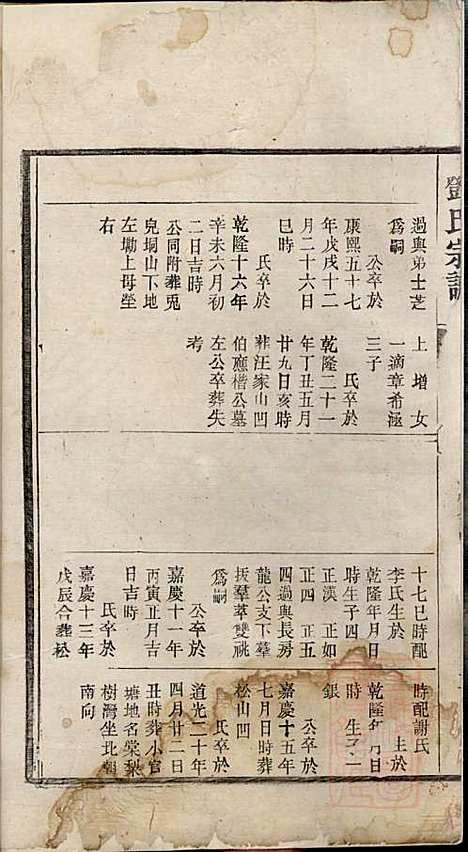 鄧氏宗譜
過與弟士芝
爲嗣
公卒於
康熙五十七
年戊戌十二
月二十六日
巳時
氏卒於
乾隆十六年
辛未六月初
二日吉時
公同附葬兎
兒垌山下地
左坳上母塋
右
上增女
一適章希涵
三子
氏卒於
乾隆二十一
年丁丑五月
廿九日亥時
葬汪家山凹
伯應楷公墓
左公卒葬失
考
十七巳時配
李氏生於
乾隆年月日
時生子四
正漢 正如
正四 正五
四過與長房
龍公支下羣
拔羣萃雙祧
爲嗣
公卒於
嘉慶十一年
丙寅正月吉
日吉時
氏卒於
嘉慶十三年
戊辰合葬松
時配謝氏
生於
乾隆年月日
時生子一
銀
公卒於
嘉慶十五年
七月日時葬
松山凹
氏卒於
道光二十年
四月廿二日
丑時葬小官
塘地名棠梨
樹灣坐北朝
南向